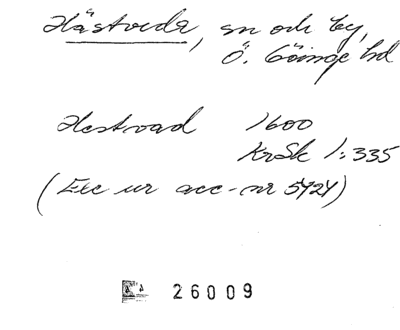 Hästveda, sn och by,
Ö. Göinge hd
Hestvad 1600
KrSk 1:335
(Exc ur acc-nr 5424)
26009